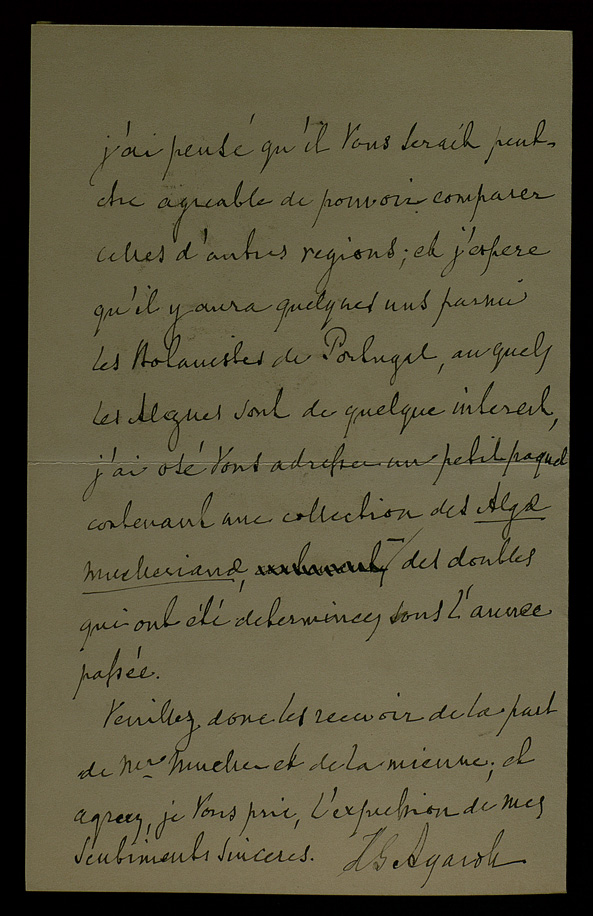 j'ai pensé qu'il Vous serait peut-
etre agreable de pouvoir comparer
celles d'autres regions; et j'espere
qu'il y aura quelques uns parmi
les Botanistes de Portugal, auquels
les Algues sont de quelque interest,
j'ai osé Vous adresser un petit paquet
contenant une collection des Algæ
Muellerianæ, des doubles
qui ont été determinees sous l'annee
passée.
Veuillez donc les recevoir de la part
de Mr Mueller et de la mienne; et
agreez, je Vous prie, l'expression de mes
sentiments sinceres. J G Agardh